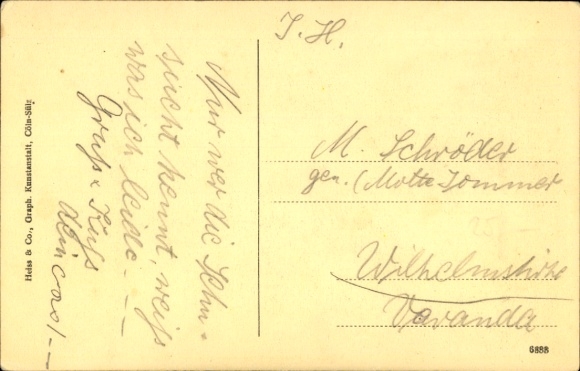 Nur wer die Sehn-
sucht kennt, weiß
was ich leide. — —
Gruß & Kuß
dein
I. H.
M. Schröder
gen. (Motte Sommer
Wilhelmshöhe
Veranda
Heiss & Co., Graph. Kunstanstalt, Cöln-Sülz
6888